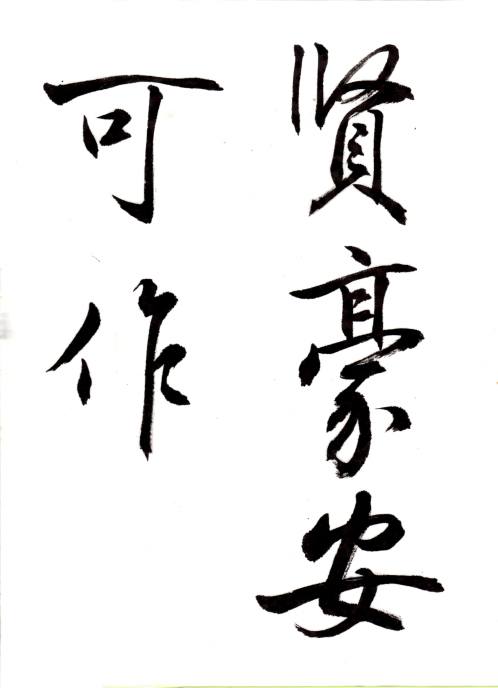 贤豪安
可作